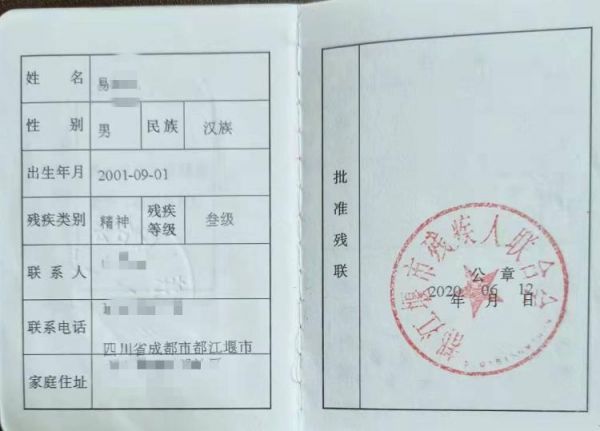 姓名 易
性别 男 民族 汉族
出生年月 2001-09-01
残疾类别 精神 残疾等级 叁级
联系人
联系电话
四川省成都市都江堰市
家庭住址
批准残联
都江堰市残疾人联合会
公章
2020 06 12
年 月 日